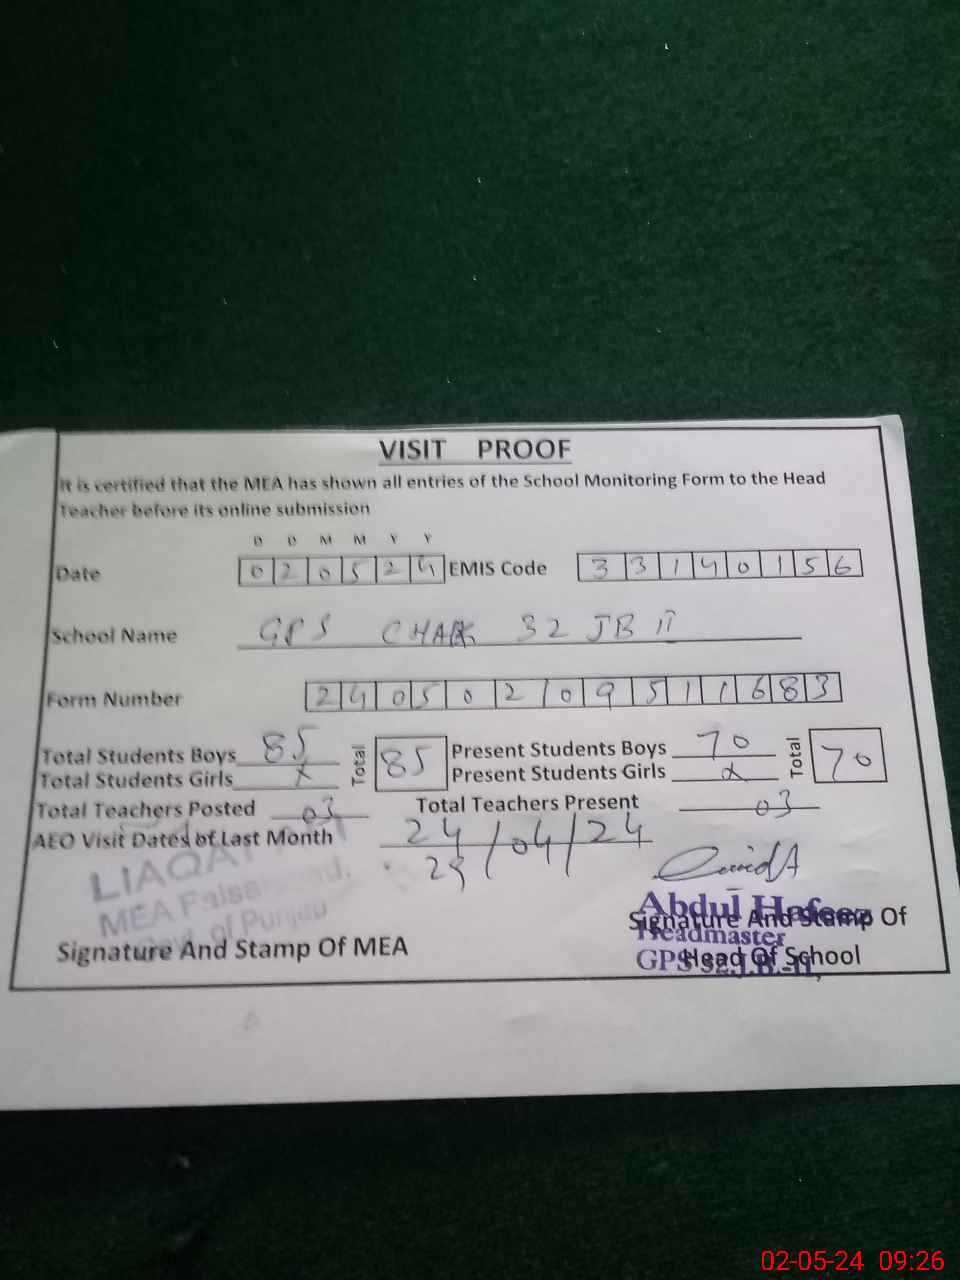 VISIT PROOF
It is certified that the MEA has shown all entries of the School Monitoring Form to the Head
Teacher before its online submission
D D M M Y Y
Date 020524 EMIS Code 33140156
School Name GPS CHAK 32 JB II
Form Number 24050209511683
Total Students Boys 85 Total 85 Present Students Boys 70 Total 70
Total Students Girls x Present Students Girls x
Total Teachers Posted 03 Total Teachers Present 03
AEO Visit Dates of Last Month 24/04/24
LIAQAT
MEA
of Punjab
Signature And Stamp Of MEA
Abdul Hafeez
Signature And Stamp Of
Headmaster
GPS 32 J.B.-II,
Head Of School
02-05-24 09:26